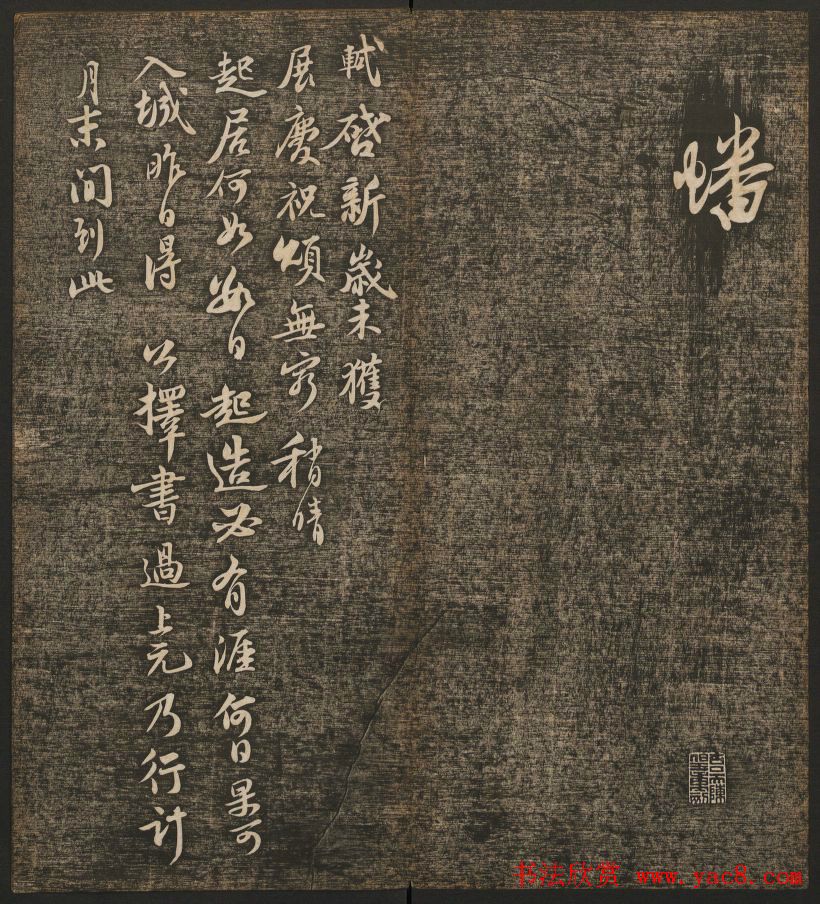 蟠
軾啓新歲未獲
展慶祝頌無窮稍晴
起居何如數日起造必有涯何日果可
入城昨日得 公擇書過上元乃行計
月末間到此
书法欣赏 www.yac8.com